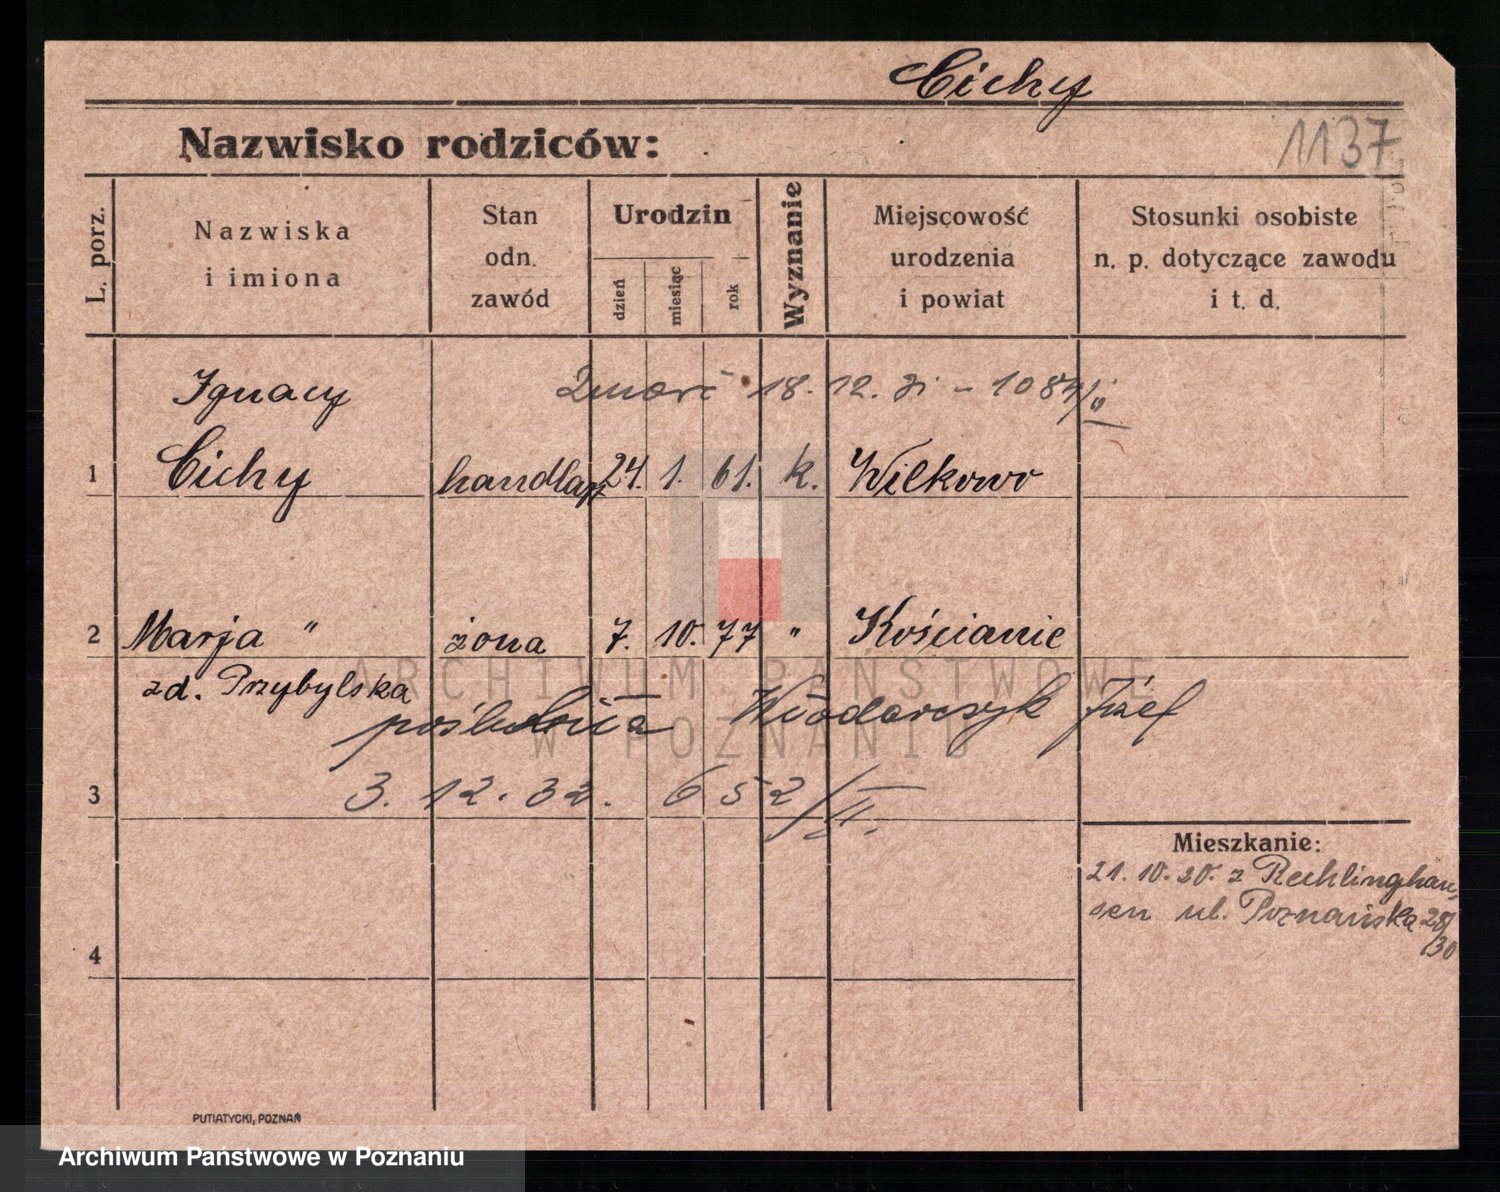 Cichy
Nazwisko rodziców:
1137
L. porz.
Nazwiska
i imiona
Stan
odn.
zawód
Urodzin
dzień
miesiąc
rok
Wyznanie
Miejscowość
urodzenia
i powiat
Stosunki osobiste
n. p. dotyczące zawodu
i t. d.
Ignacy
Zmarł 18. 12. 31 – 1084/II
1 Cichy handlarz 24. 1. 61. k. Wilkowo
2 Marja " żona 7. 10. 77 " Kościanie
zd. Przybylska
poślubiła Włodarczyk Józef
3
3. 12. 32. 652/II.
Mieszkanie:
21. 10. 20. z Recklinghau-
sen ul. Poznańska 28/
30
4
PUTIATYCKI, POZNAŃ
ARCHIWUM PAŃSTWOWE
W POZNANIU
Archiwum Państwowe w Poznaniu